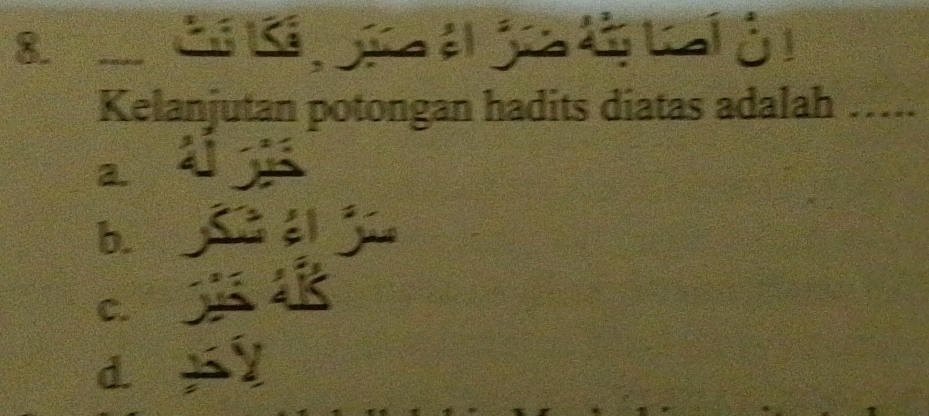 8. إنْ أَصَا بَتْهُ ضَرَّ اءُ صَبَرَ , فَكَا نَتْ ___
Kelanjutan potongan hadits diatas adalah .....
a. خَيْرَ لَهُ
b. سَرَّ اءُ شَكَرَ
c. كُلَّهُ خَيْرَ
d. لِأَحَدٍ